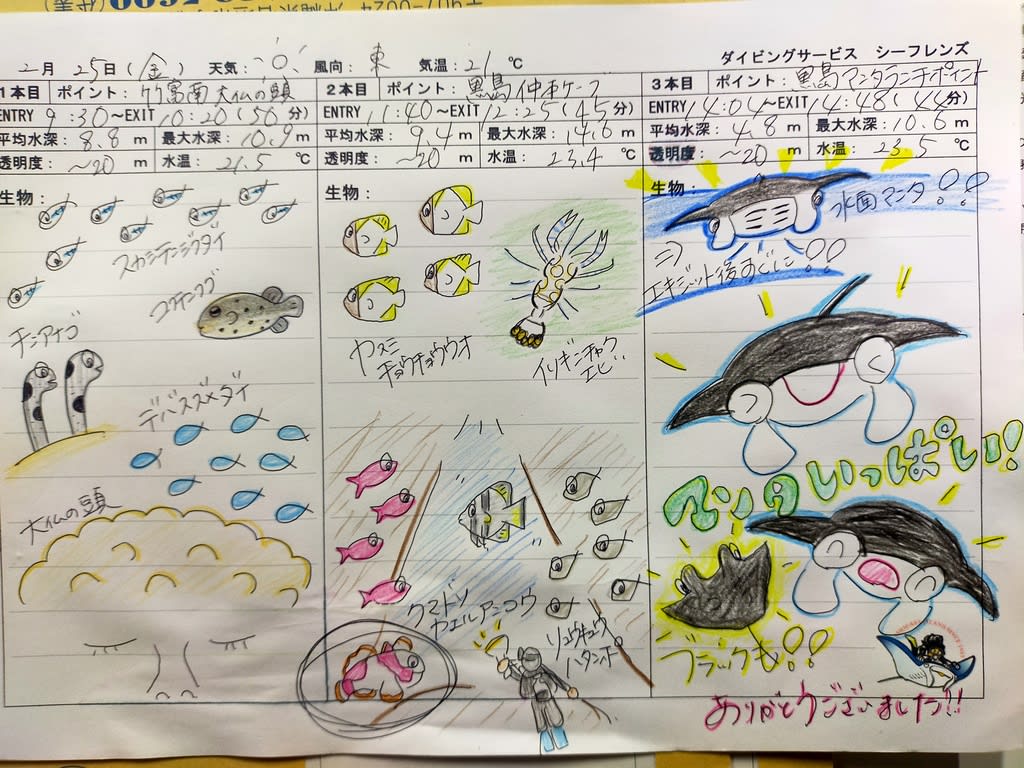 2月 25日(金) 天気: 風向: 東 気温: 21 ℃
ダイビングサービス シーフレンズ
1本目 ポイント: 竹富南 大仏の頭
ENTRY 9:30〜EXIT 10:20(50分)
平均水深: 8.8 m 最大水深: 10.9 m
透明度: 〜20 m 水温: 21.5 ℃
生物:
スカシテンジクダイ
コクテンフグ
チンアナゴ
デバスズメダイ
大仏の頭
2本目 ポイント: 黒島 仲本ケーブ
ENTRY 11:40〜EXIT 12:25(45分)
平均水深: 9.4 m 最大水深: 14.6 m
透明度: 〜20 m 水温: 23.4 ℃
生物:
ヤスミ
チョウチョウウオ
イソギンチャク
エビ!!
クマドリ
カエルアンコウ
リュウキュウ
ハタンポ
3本目 ポイント: 黒島 マンタランチポイント
ENTRY 14:04〜EXIT 14:48(44分)
平均水深: 4.8 m 最大水深: 10.6 m
透明度: 〜20 m 水温: 23.5 ℃
生物:
水面マンタ!!
エキジット後すぐに!!
マンタいっぱい!
ブラックも!!
ありがとうございました!!